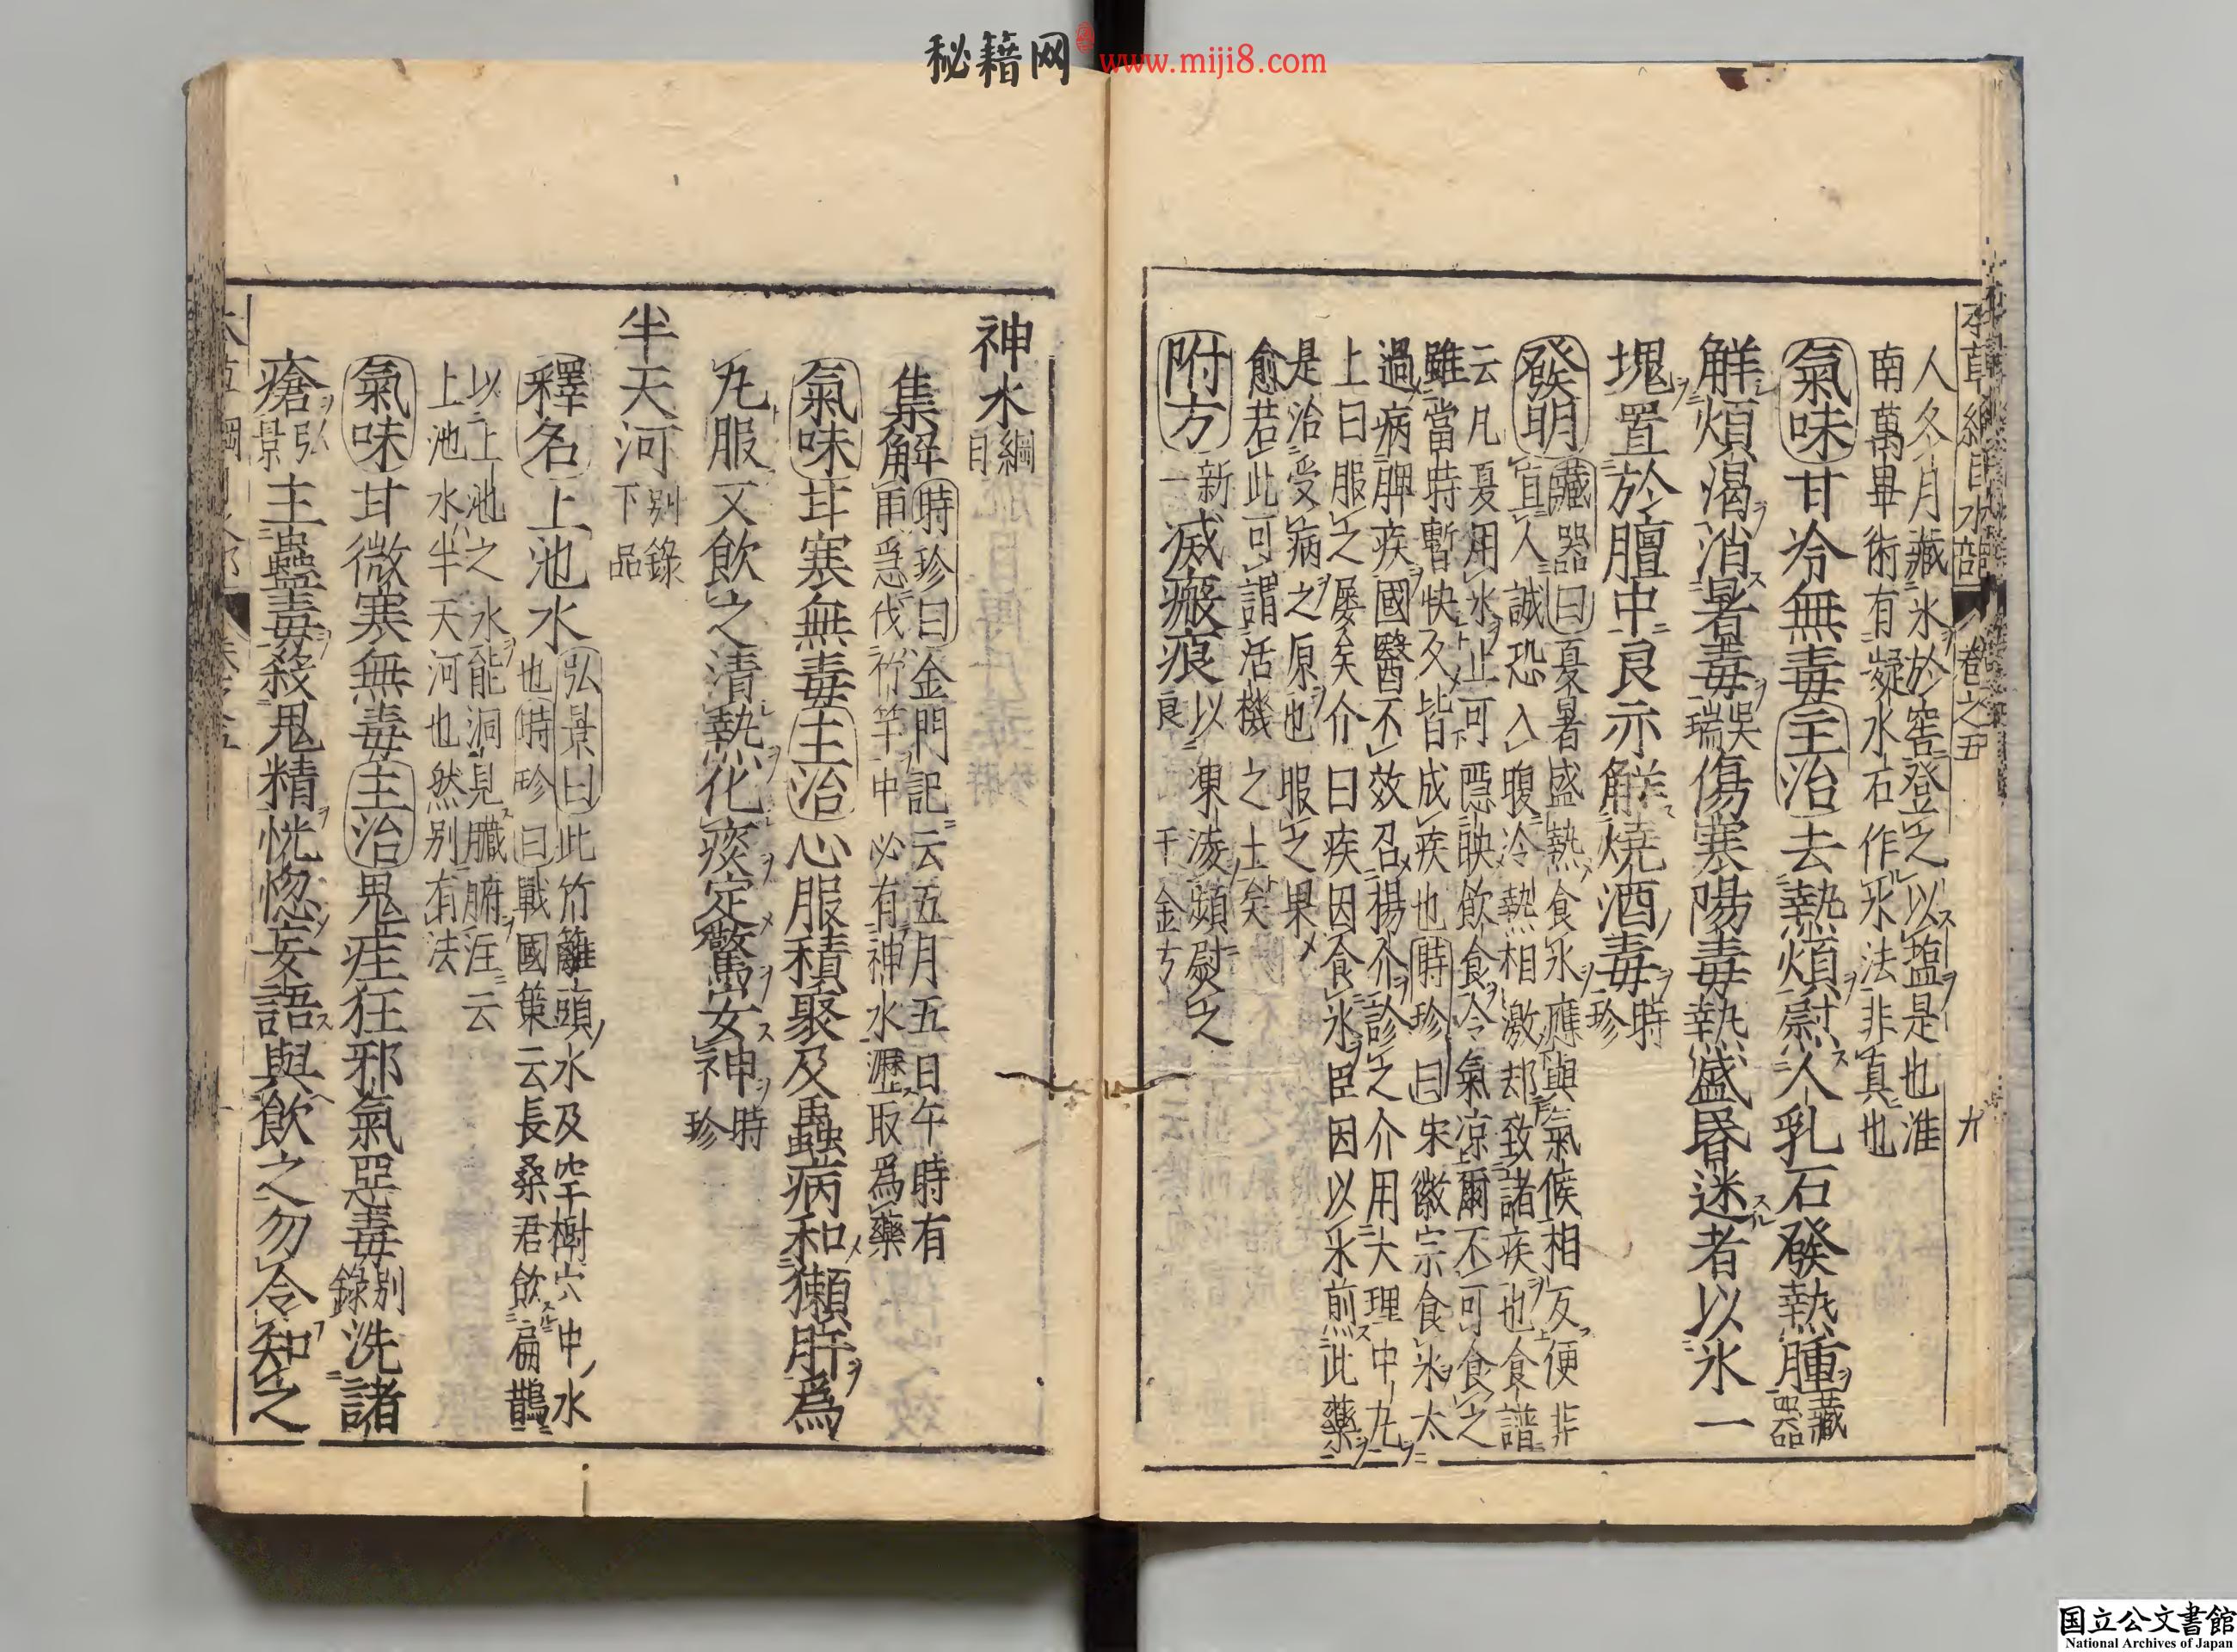 秘籍网 www.miji8.com
本草綱目水部 卷之五 九
人冬月藏氷於窖登之以塩是也淮
南萬畢術有凝水石作氷法非真也
氣味甘冷無毒主治去熱煩熨人乳石發熱腫藏器
解煩渴消暑毒吳瑞傷寒陽毒熱盛昏迷者以氷一
塊置於膻中良亦解燒酒毒時珍
發明藏器曰夏暑盛熱食氷應與氣候相反便非
宜人誠恐入腹冷熱相激却致諸疾也食譜
云凡夏用氷止可隠映飲食令氣凉爾不可食之
雖當時暫快久皆成疾也時珍曰宋徽宗食氷太
過病脾疾國醫不效召楊介診之介用大理中丸
上曰服之屡矣介曰疾因食氷臣因以氷煎此藥
是治受病之原也服之果
愈若此可謂活機之士矣
附方新一滅瘢痕以凍凌頻熨之良千金方
神水綱目
集解時珍曰金門記云五月五日午時有
雨急伐竹竿中必有神水瀝取為藥
氣味甘寒無毒主治心服積聚及蟲病和獺肝為
丸服又飲之清熱化痰定驚安神時珍
半天河別錄下品
釋名上池水弘景曰此竹籬頭水及空樹穴中水
也時珍曰戰國策云長桑君飲扁鵲
以上池之水能洞見臟腑注云
上池水半天河也然別有法
氣味甘微寒無毒主治鬼疰狂邪氣惡毒別錄洗諸
瘡弘景主蠱毒殺鬼精恍惚妄語與飲之勿令知之
国立公文書館
National Archives of Japan